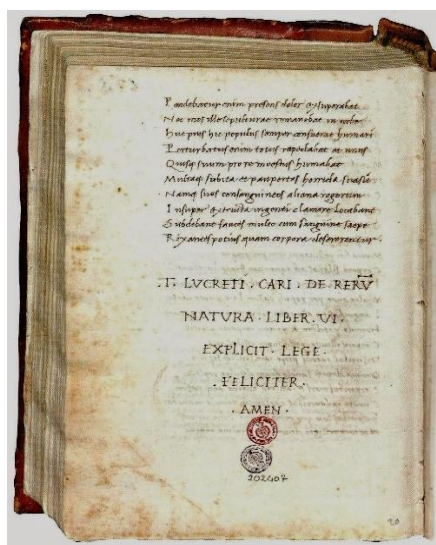 Pendebatur enim presens dolor exsuperabat
Nec mos ille sepulturae remanebat in urbe
Huc pius hic populus semper consuerat humari
Perturbatus enim totus repedabat et unus
Quisq suum pro re moestus humabat
Multaq subita et paupertas horrida suasit
Namq suos consanguineos aliena rogorum
Insuper extructa ingenti clamore locabant
Subdebant faces multo cum sanguine saepe
Rixantes potius quam corpora desererentur
·T· LVCRETI · CARI · DE · RERV̅
NATVRA · LIBER · VI ·
EXPLICIT · LEGE ·
FELICITER ·
· AMEN ·
202407